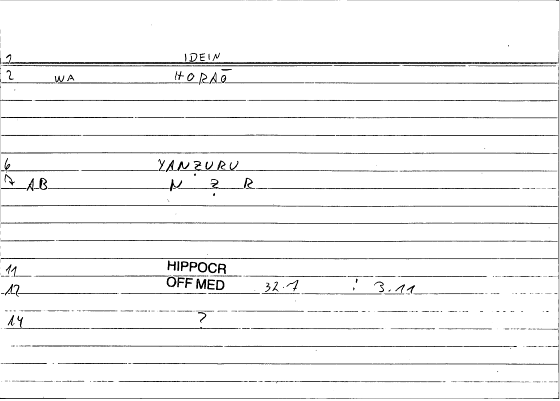 1 IDEIN
2 WA HORAŌ
6 YANẒURU
7 AB N Ẓ R
11 HIPPOCR
12 OFF MED 32.7 : 3.11
14 ?